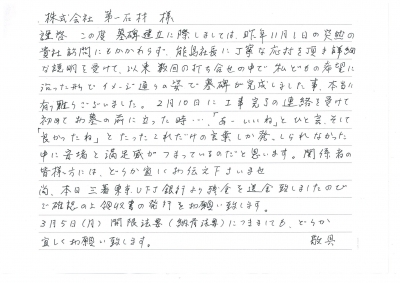 株式会社 第一石材 様
謹啓 この度 墓碑建立に際しましては、昨年11月1日の突然の
貴社訪問にもかかわらず、能島社長に丁寧な応対を頂き詳細
な説明を受けて、以来 数回の打ち合せの中で私どもの希望に
沿った形でイメージ通りの姿で墓碑が完成しました事、本当に
有り難うございました。 2月10日に工事完了の連絡を受けて
初めてお墓の前に立った時…、「あーいいね」とひと言、そして
「良かったね」とたったこれだけの言葉しか発しられなかった
中に安堵と満足感がつまっているのだと思います。関係者の
皆様方には、どうか宜しくお伝え下さいませ
尚、本日 三菱東京UFJ銀行より残金を送金致しましたので
ご確認の上領収書の発行をお願い致します。
3月5日(月) 開眼法要(納骨法要)につきましても、どうか
宜しくお願い致します。 敬具